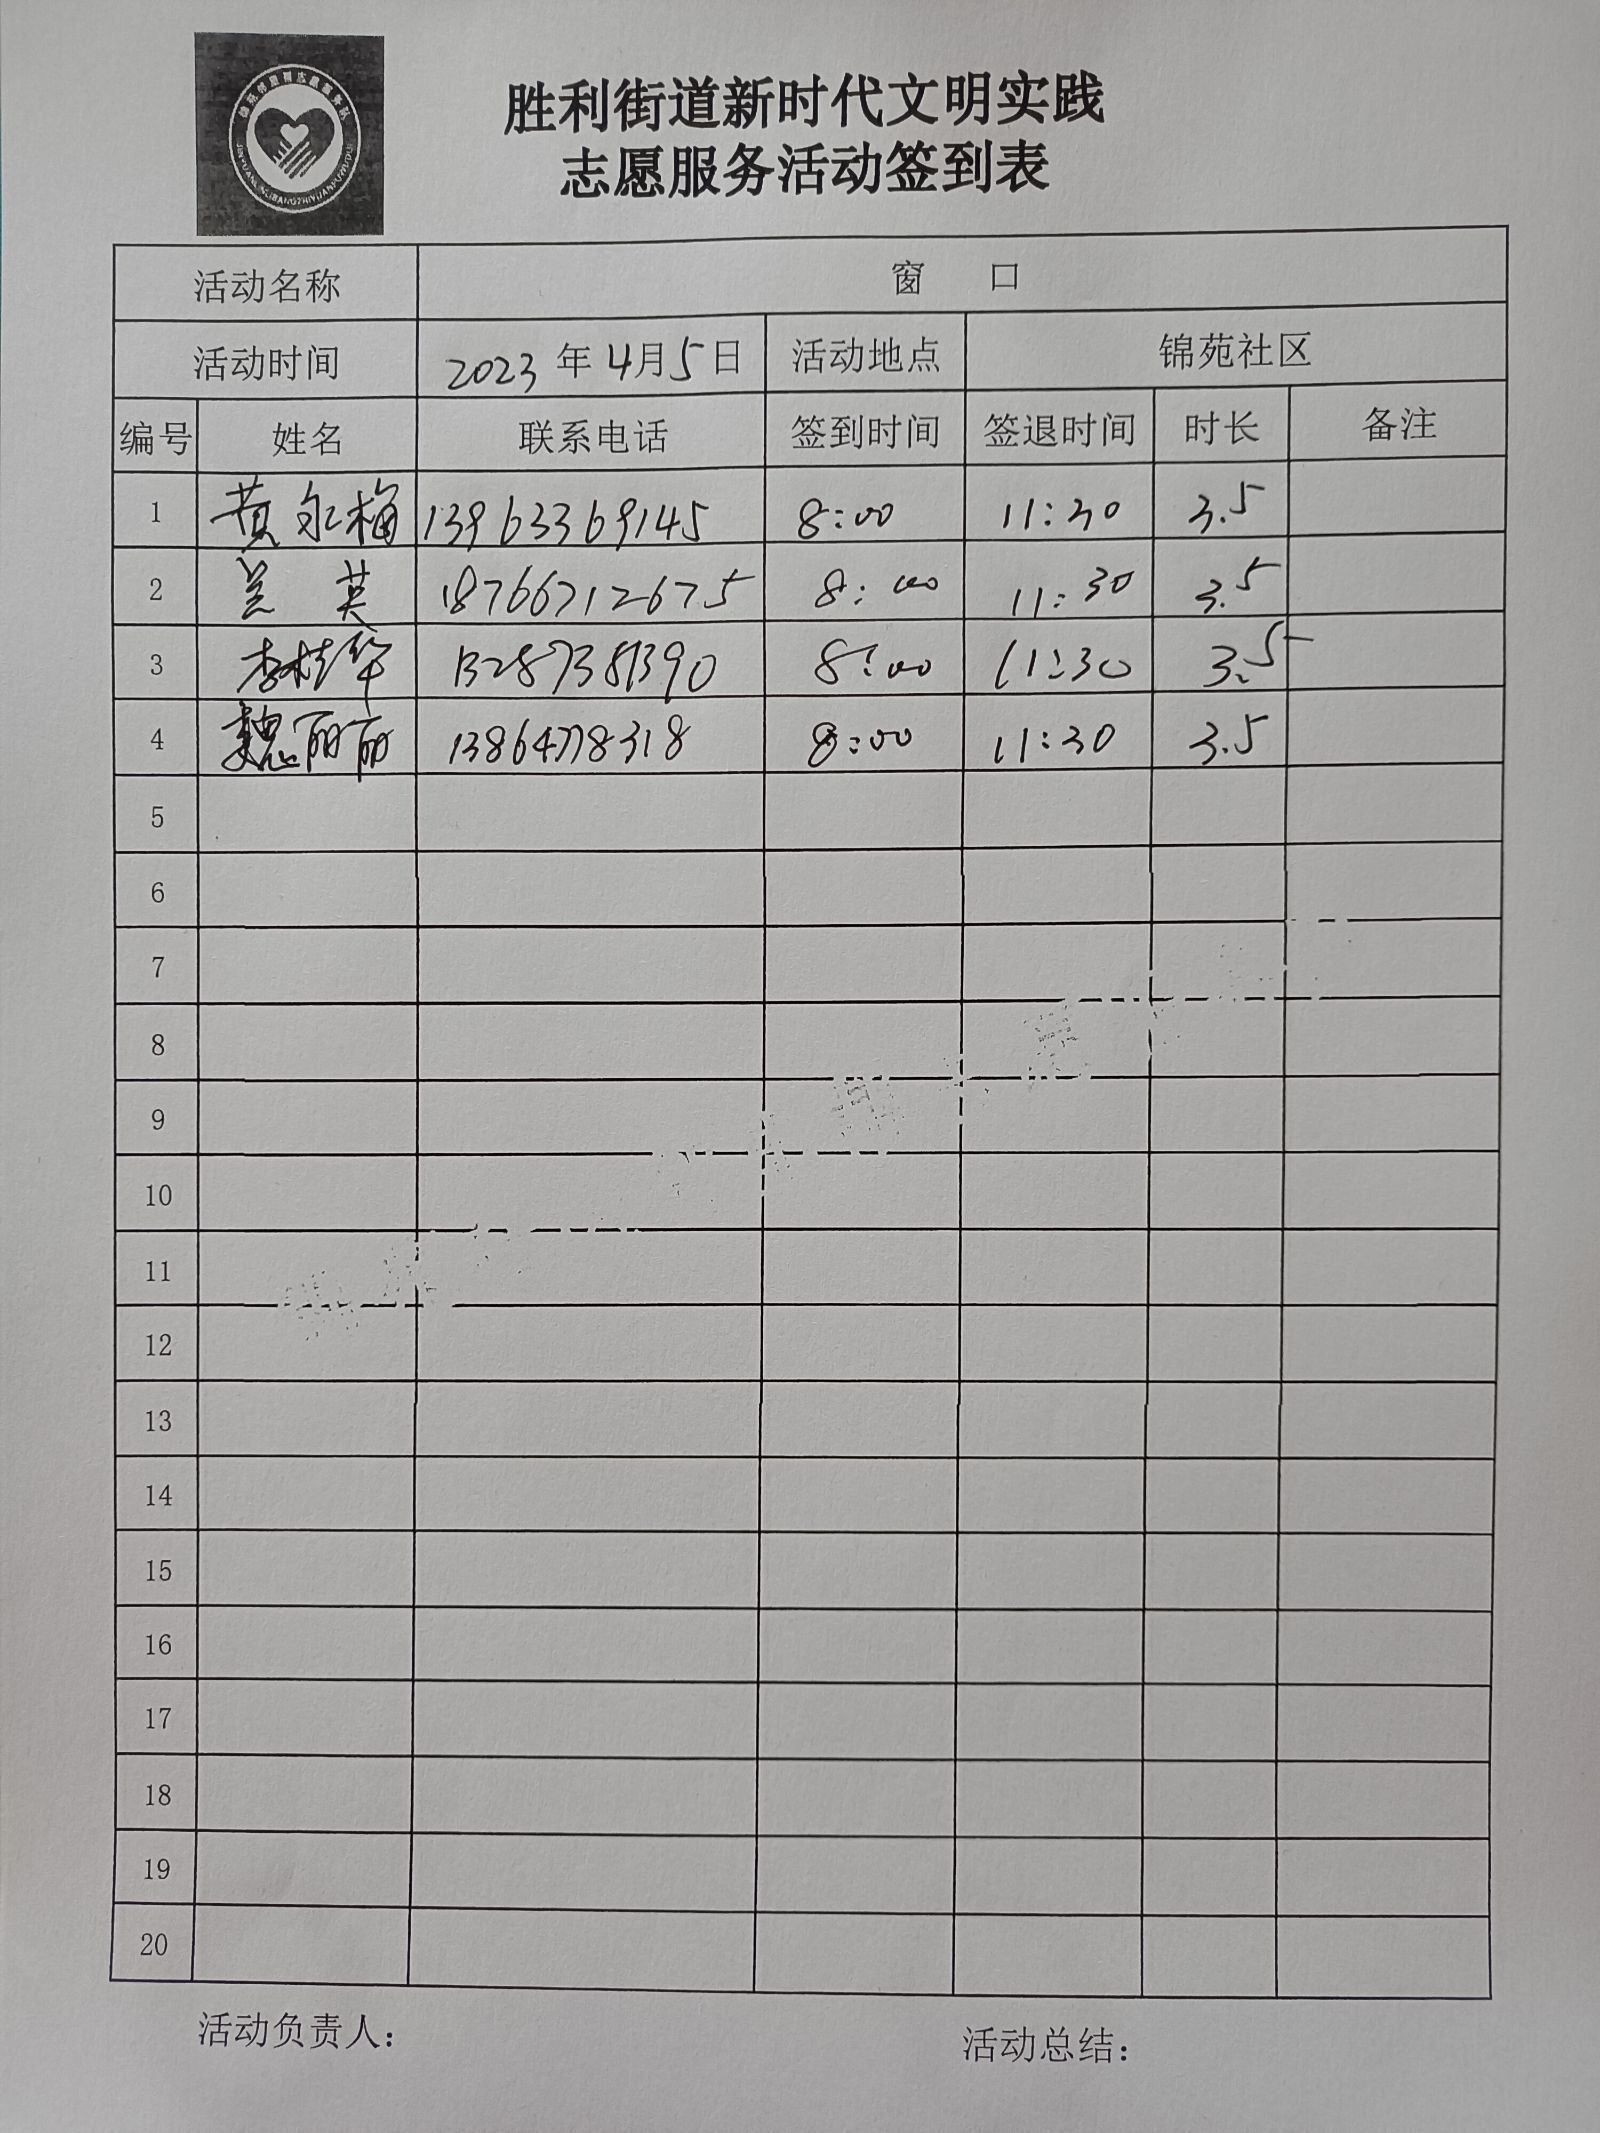 胜利街道新时代文明实践
志愿服务活动签到表
活动名称 窗 口
活动时间 2023 年 4月5日 活动地点 锦苑社区
编号 姓名 联系电话 签到时间 签退时间 时长 备注
1 黄尔梅 13963369145 8:00 11:30 3.5
2 兰 英 18766712675 8:00 11:30 3.5
3 李桂华 13287381390 8:00 11:30 3.5
4 魏丽丽 13864778318 8:00 11:30 3.5
5
6
7
8
9
10
11
12
13
14
15
16
17
18
19
20
活动负责人： 活动总结：